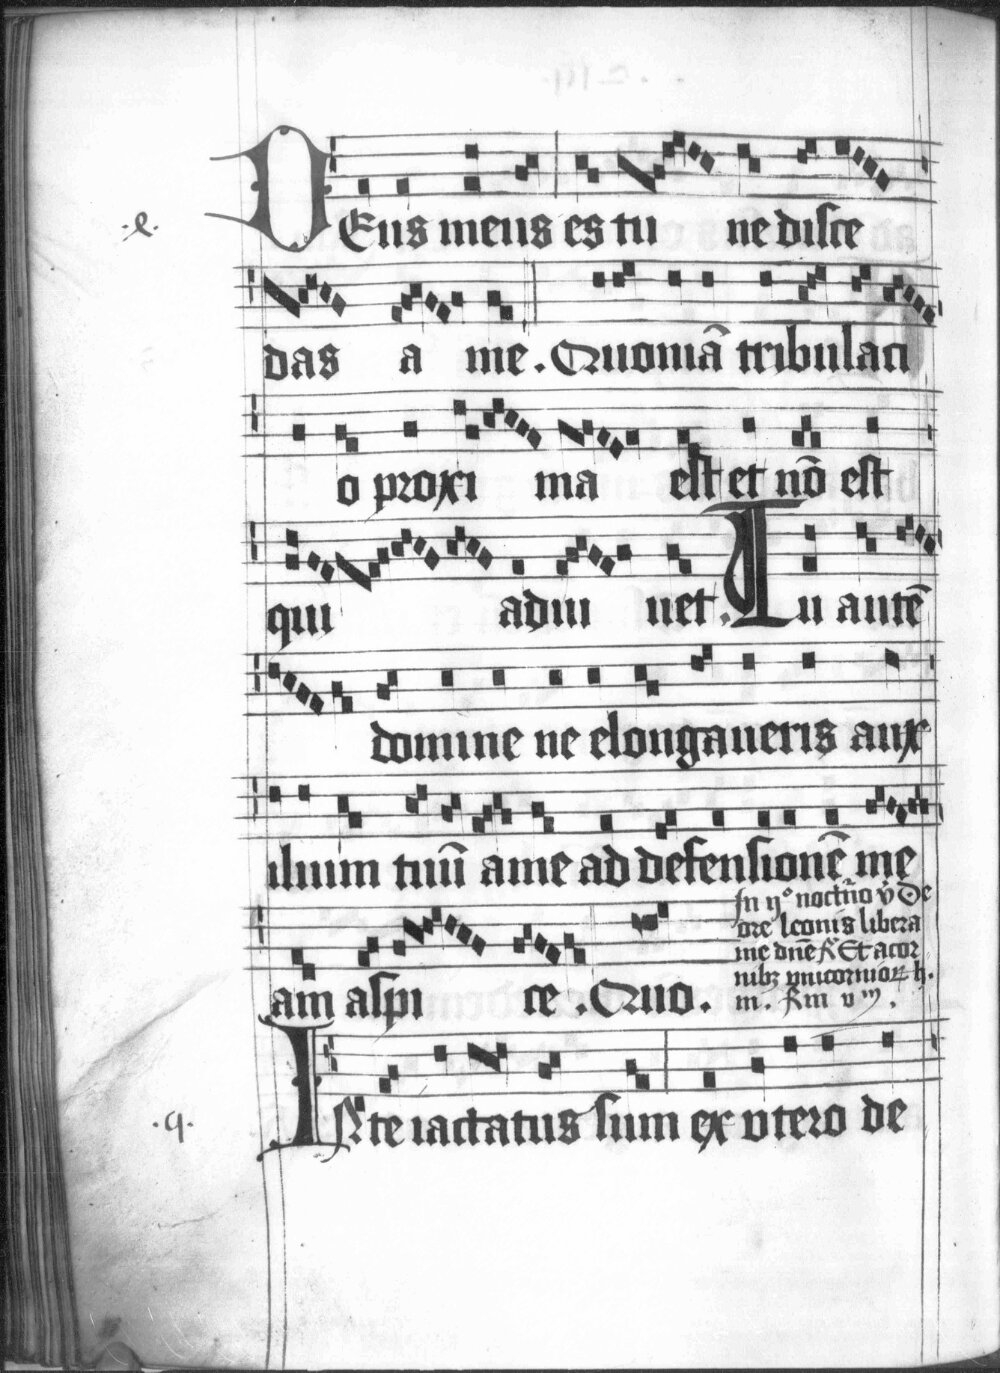 ·l· DEus meus es tu ne disce
das a me. Quoniā tribulaci
o proxi ma est et nō est
qui adiu uet. Tu autē
domine ne elongaueris aux
ilium tuū a me ad defensionē me
In ijº noctn̄o v̄ De
ore leonis libera
me dn̄e R̄ Et a cor
nibꝫ vnicornioꝝ h.
am aspi ce. Quo. m. R̄m v
·q· INte iactatus sum ex vtero de